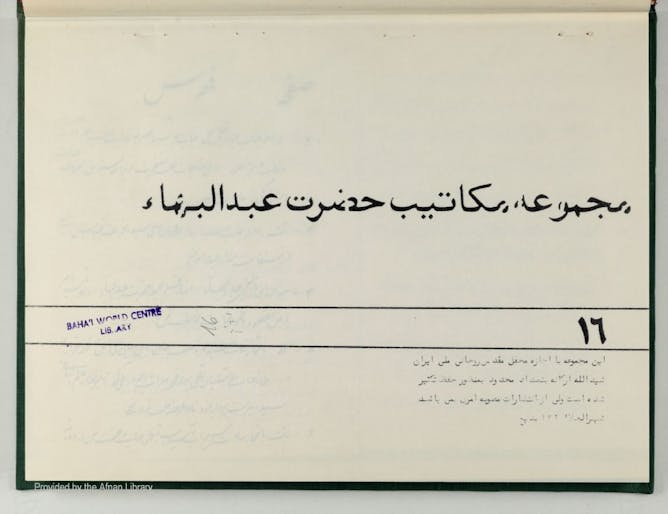 مجموعه مکاتیب حضرت عبدالبهاء
BAHA'I WORLD CENTRE
LIBRARY
16
١٦
این مجموعه با اجازه محفل مقدس روحانی ملی ایران
شیدالله ارکانه بتعداد محدود بمنظور حفظ تکثیر
شده است ولی از انتشارات مصوبه امری نمی باشد
شهرالجلال ١٣٢ بدیع
Provided by the Afnan Library